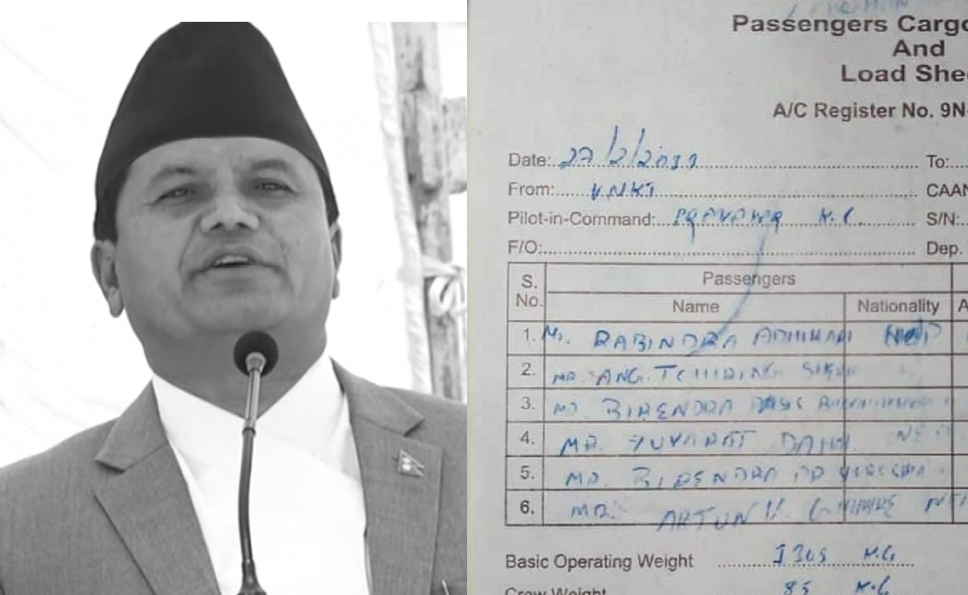 Passengers Cargo
And
Load Shee
A/C Register No. 9N-
Date: 27/2/2019 To:
From: VNKT CAAN
Pilot-in-Command: K.C. S/N:
F/O: Dep.
S. No. Passengers
Name Nationality A
1. Mr. RABINDRA ADHIKARI NEP
2. MR. ANG. TCHIRING
3. MR. BIRENDRA
4. MR. YUVARAT DAHAL NEP
5. MR. BIRENDRA PD
6. MR. ARJUN K. GHIMIRE NEP
Basic Operating Weight 1305 K.G
Crew Weight 85 K.G